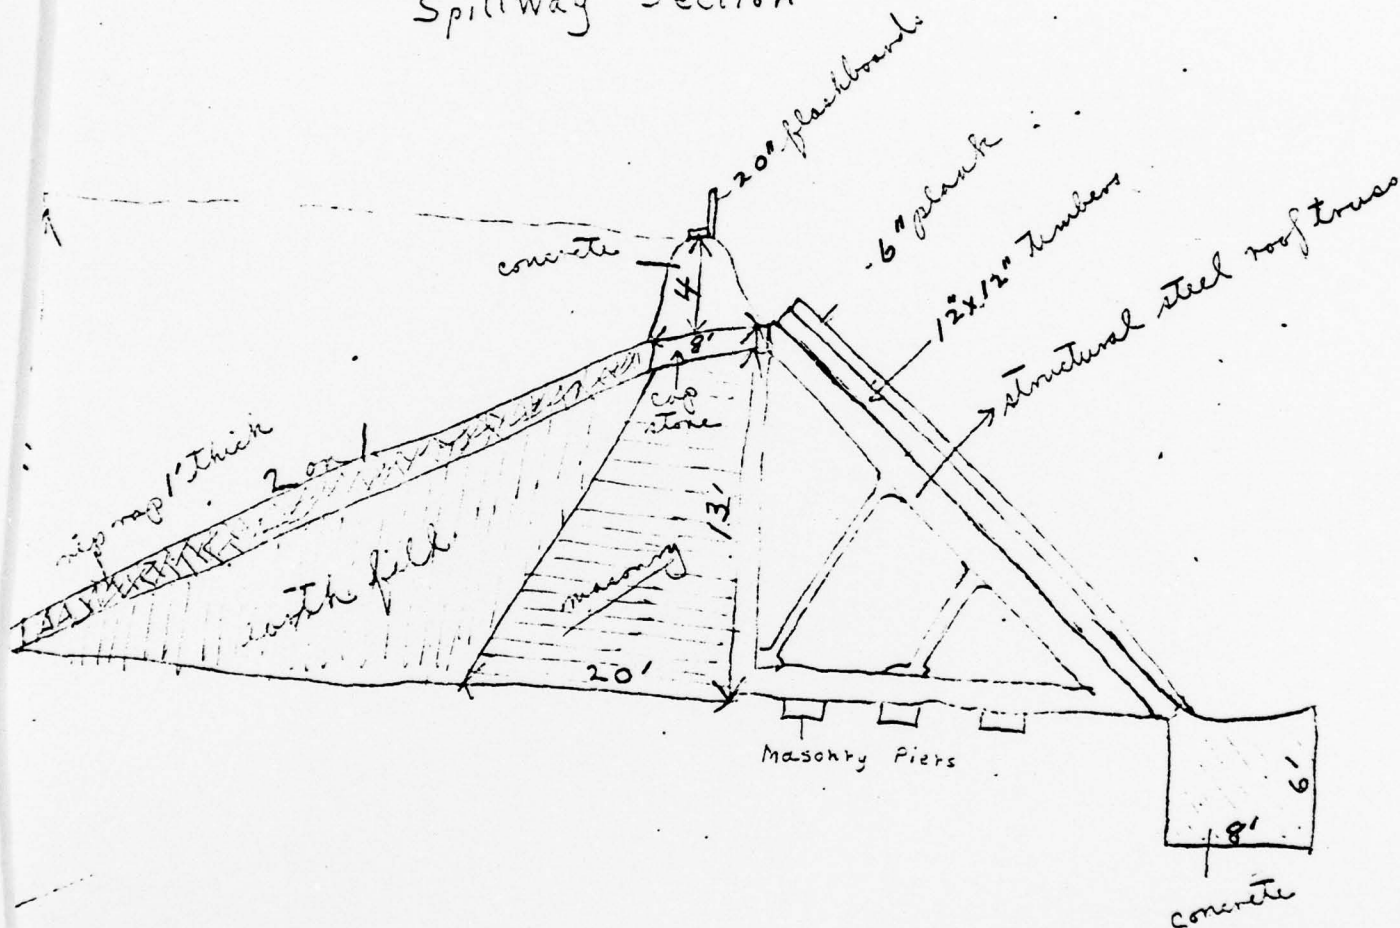 Spillway Section
20" flashboards
6" plank
12"x12" timbers
structural steel roof truss
concrete
4
8'
cap
stone
rip rap 1' thick
2 on 1
earth field.
masonry
13'
20'
Masonry Piers
6'
8'
concrete